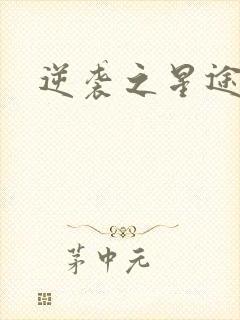 逆袭之星途
茅中元